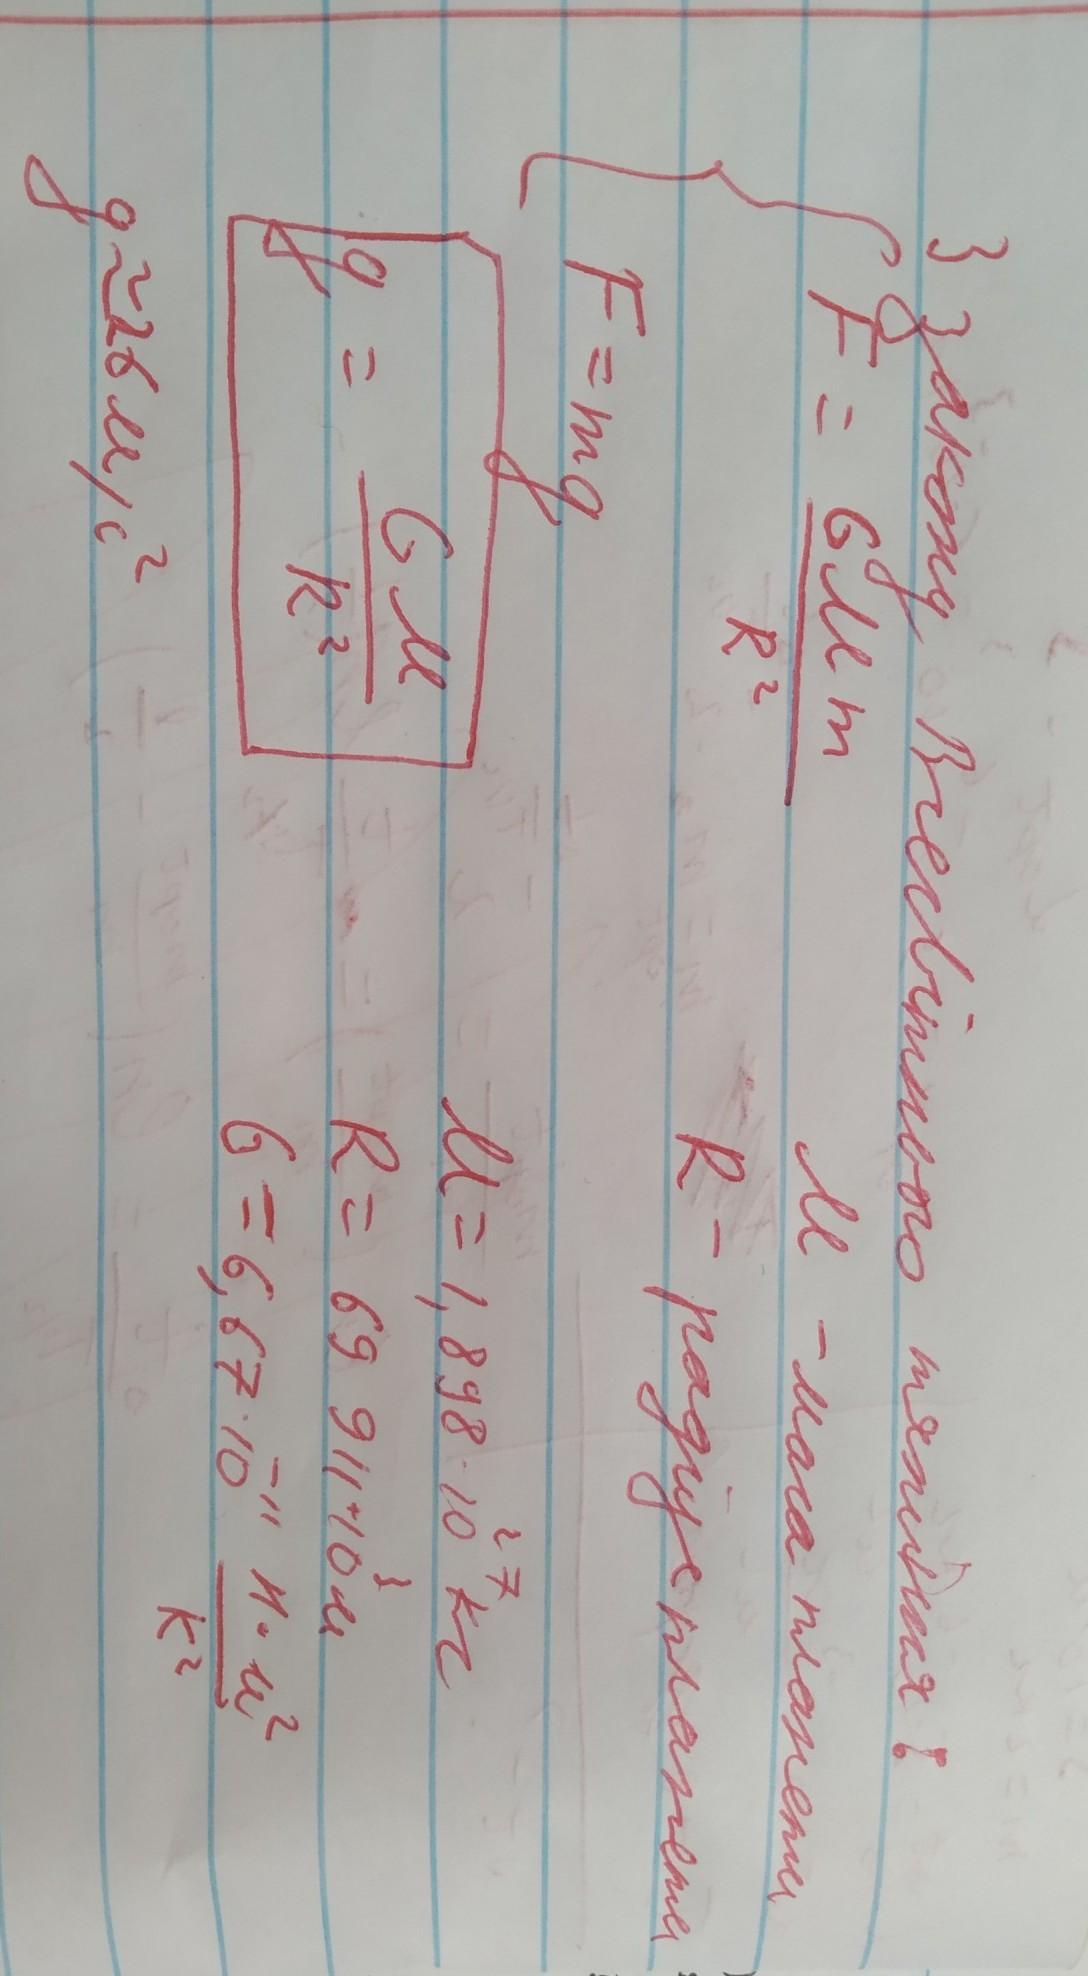 З Закону Всесвітнього тяжіння:
F = GMm
R²
M - маса планети
R - радіус планети
F = mg
g = GM
R²
M = 1,898 · 10²⁷ кг
R = 69 911 · 10³ м
G = 6,67 · 10⁻¹¹ Н · м²
к²
g ≈ 26 м/с²